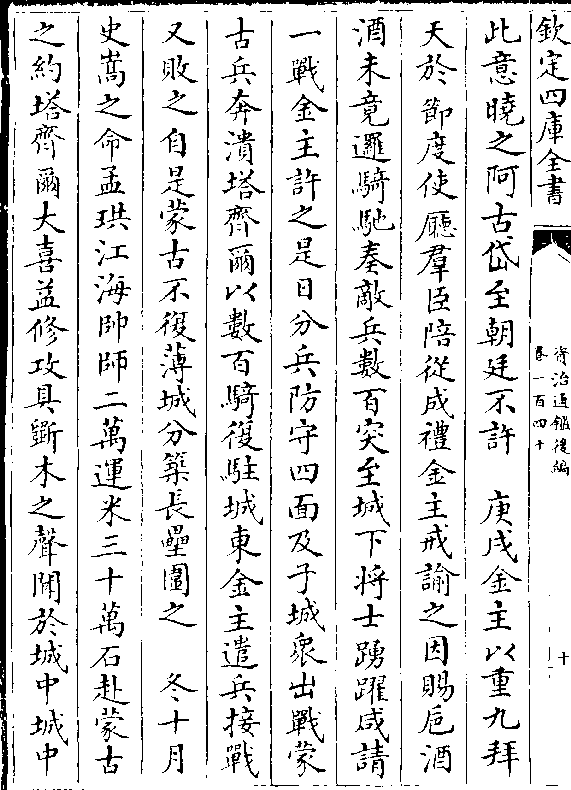 欽定四庫全書
資治通鑑後編
卷一百四十
十
此意曉之阿古岱至朝廷不許　庚戌金主以重九拜
天於節度使廳羣臣陪從成禮金主戒諭之因賜巵酒
酒未竟邏騎馳奏敵兵數百突至城下將士踴躍咸請
一戰金主許之是日分兵防守四面及子城衆出戰蒙
古兵奔潰塔齊爾以數百騎復駐城東金主遣兵接戰
又敗之自是蒙古不復薄城分築長壘圍之　冬十月
史嵩之命孟珙江海帥師二萬運米三十萬石赴蒙古
之約塔齊爾大喜益修攻具斲木之聲聞於城中城中